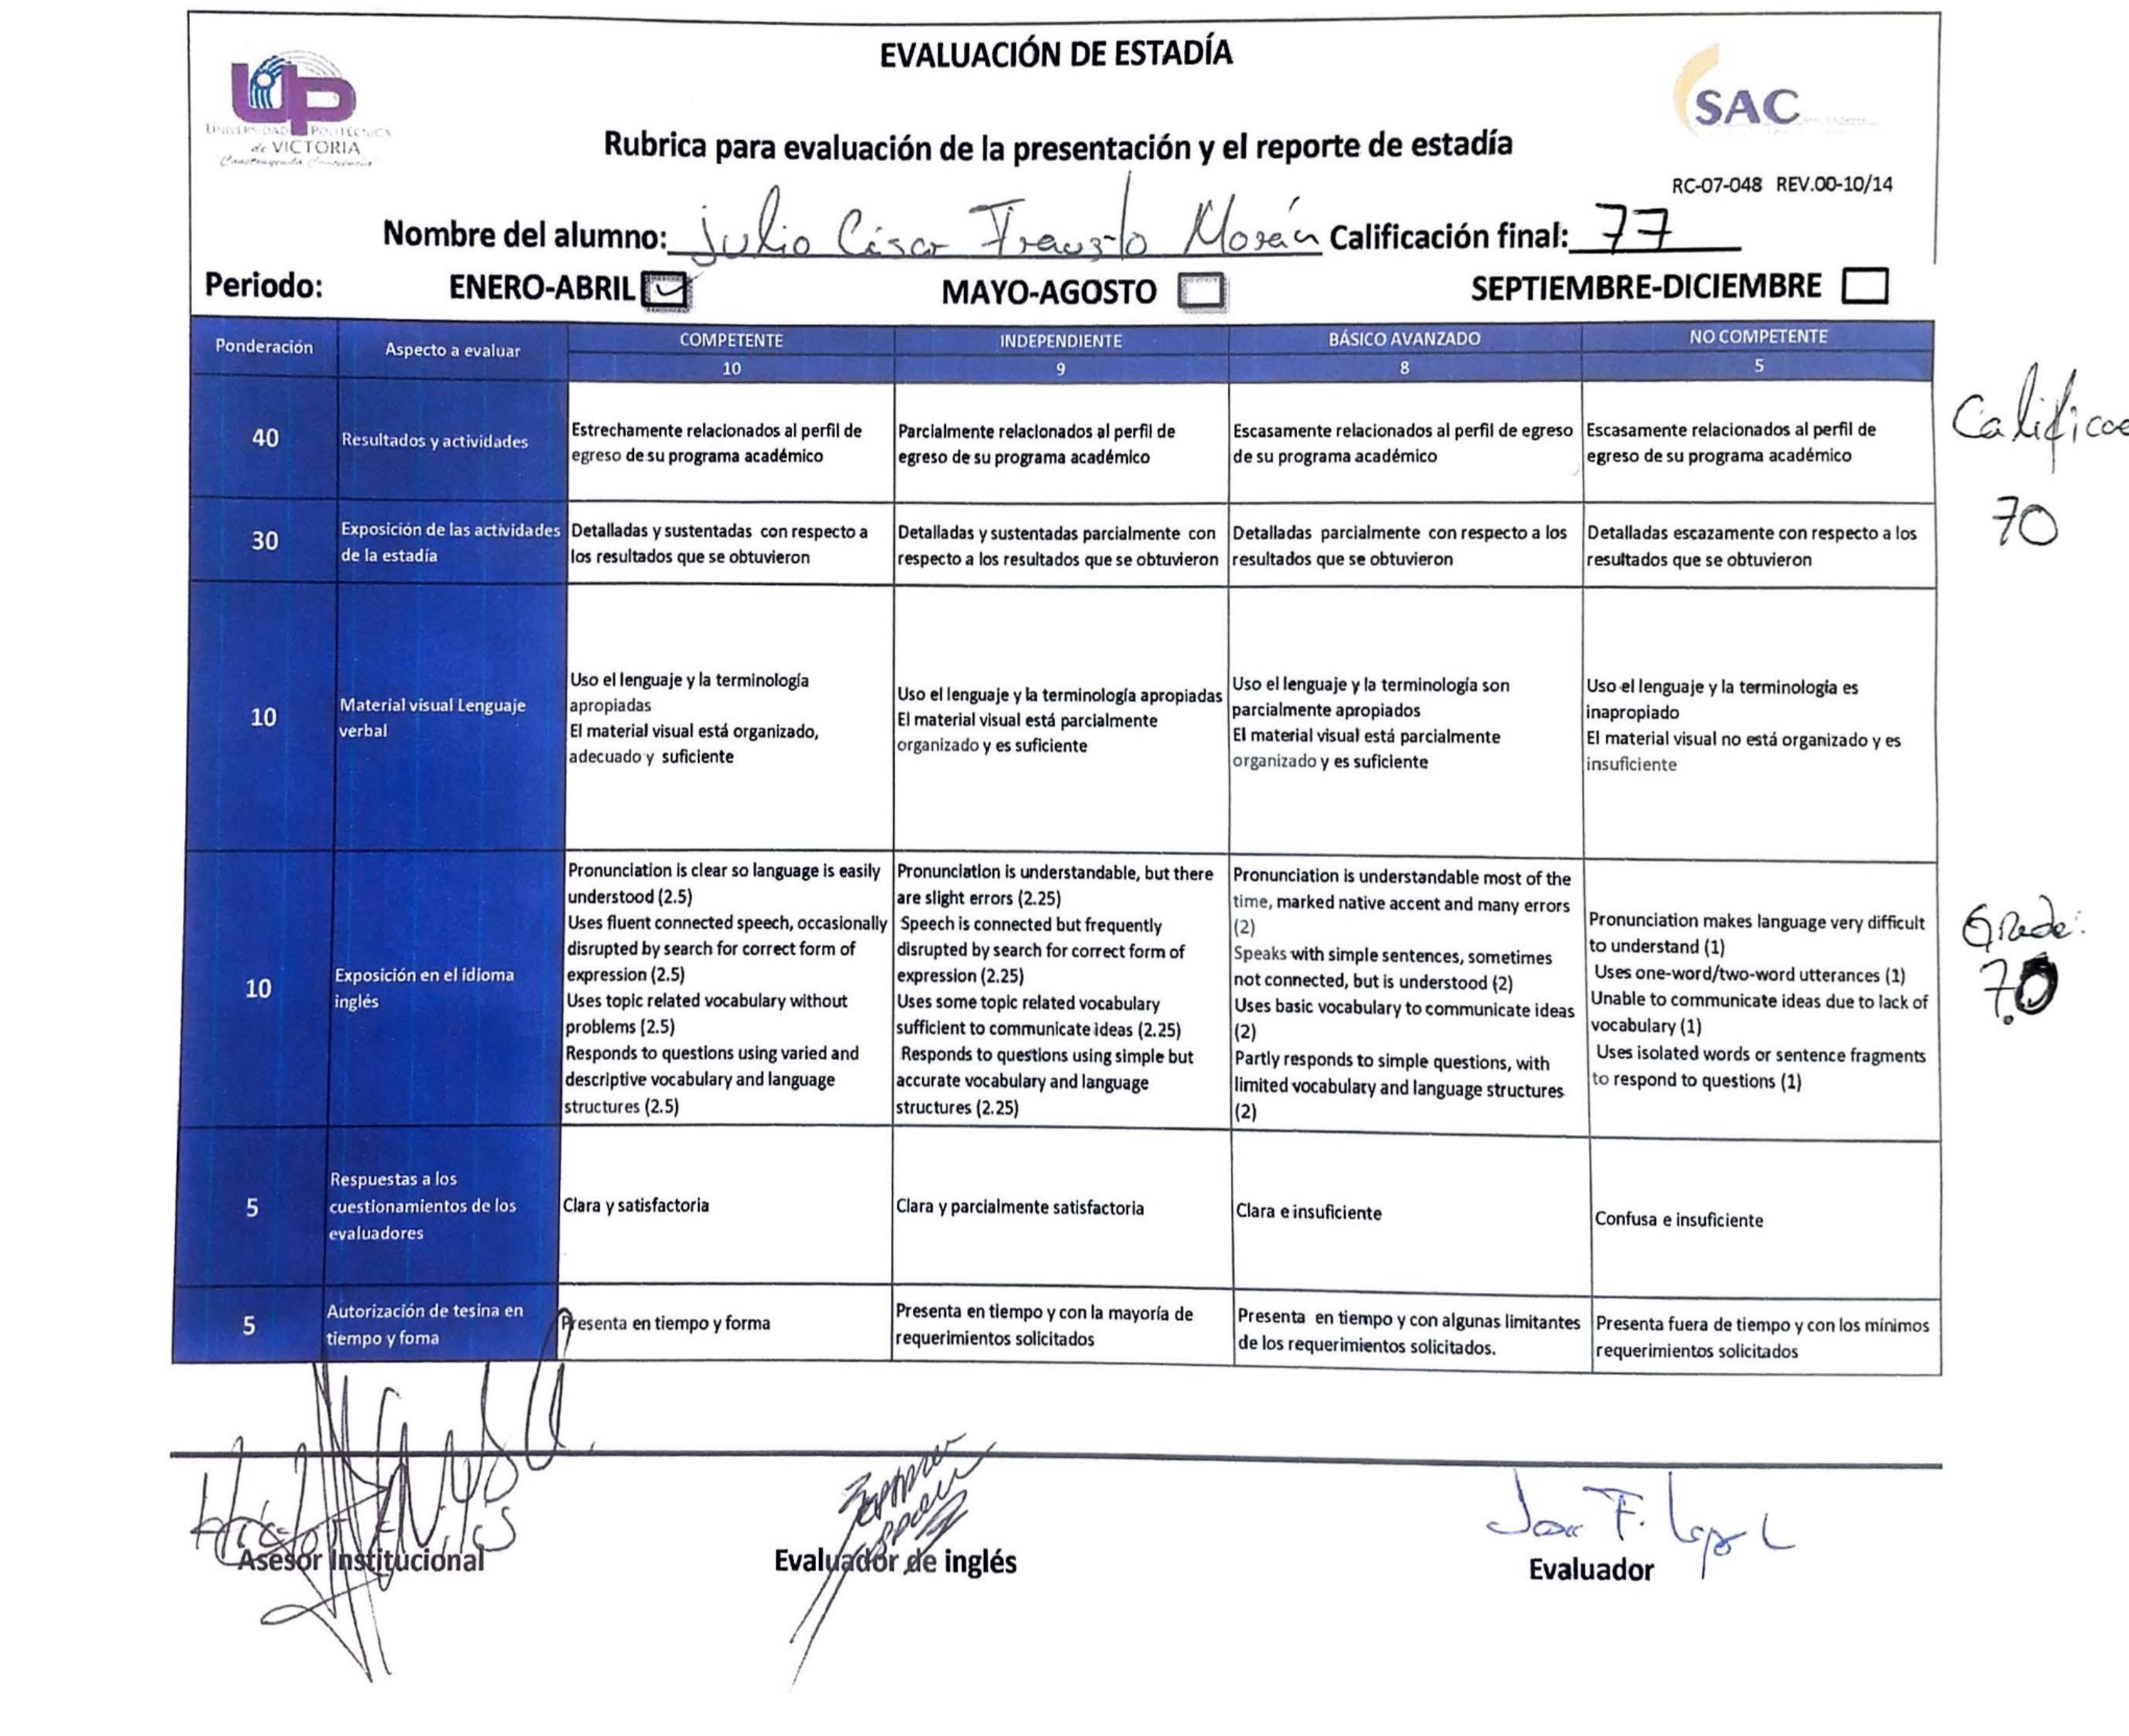 EVALUACIÓN DE ESTADÍA
UP
UNIVERSIDAD POLITÉCNICA
de VICTORIA
SAC
Rubrica para evaluación de la presentación y el reporte de estadía
RC-07-048 REV.00-10/14
Nombre del alumno: Julio César Frausto Morán Calificación final: 77
Periodo: ENERO-ABRIL MAYO-AGOSTO SEPTIEMBRE-DICIEMBRE
Ponderación
Aspecto a evaluar
COMPETENTE
10
INDEPENDIENTE
9
BÁSICO AVANZADO
8
NO COMPETENTE
5
40
Resultados y actividades
Estrechamente relacionados al perfil de
egreso de su programa académico
Parcialmente relacionados al perfil de
egreso de su programa académico
Escasamente relacionados al perfil de egreso
de su programa académico
Escasamente relacionados al perfil de
egreso de su programa académico
70
30
Exposición de las actividades
de la estadía
Detalladas y sustentadas con respecto a
los resultados que se obtuvieron
Detalladas y sustentadas parcialmente con
respecto a los resultados que se obtuvieron
Detalladas parcialmente con respecto a los
resultados que se obtuvieron
Detalladas escazamente con respecto a los
resultados que se obtuvieron
10
Material visual Lenguaje
verbal
Uso el lenguaje y la terminología
apropiadas
El material visual está organizado,
adecuado y suficiente
Uso el lenguaje y la terminología apropiadas
El material visual está parcialmente
organizado y es suficiente
Uso el lenguaje y la terminología son
parcialmente apropiados
El material visual está parcialmente
organizado y es suficiente
Uso el lenguaje y la terminología es
inapropiado
El material visual no está organizado y es
insuficiente
10
Exposición en el idioma
inglés
Pronunciation is clear so language is easily
understood (2.5)
Uses fluent connected speech, occasionally
disrupted by search for correct form of
expression (2.5)
Uses topic related vocabulary without
problems (2.5)
Responds to questions using varied and
descriptive vocabulary and language
structures (2.5)
Pronunciation is understandable, but there
are slight errors (2.25)
Speech is connected but frequently
disrupted by search for correct form of
expression (2.25)
Uses some topic related vocabulary
sufficient to communicate ideas (2.25)
Responds to questions using simple but
accurate vocabulary and language
structures (2.25)
Pronunciation is understandable most of the
time, marked native accent and many errors
(2)
Speaks with simple sentences, sometimes
not connected, but is understood (2)
Uses basic vocabulary to communicate ideas
(2)
Partly responds to simple questions, with
limited vocabulary and language structures
(2)
Pronunciation makes language very difficult
to understand (1)
Uses one-word/two-word utterances (1)
Unable to communicate ideas due to lack of
vocabulary (1)
Uses isolated words or sentence fragments
to respond to questions (1)
Grade:
7.0
5
Respuestas a los
cuestionamientos de los
evaluadores
Clara y satisfactoria
Clara y parcialmente satisfactoria
Clara e insuficiente
Confusa e insuficiente
5
Autorización de tesina en
tiempo y foma
Presenta en tiempo y forma
Presenta en tiempo y con la mayoría de
requerimientos solicitados
Presenta en tiempo y con algunas limitantes
de los requerimientos solicitados.
Presenta fuera de tiempo y con los mínimos
requerimientos solicitados
Asesor Institucional
Evaluador de inglés
Evaluador